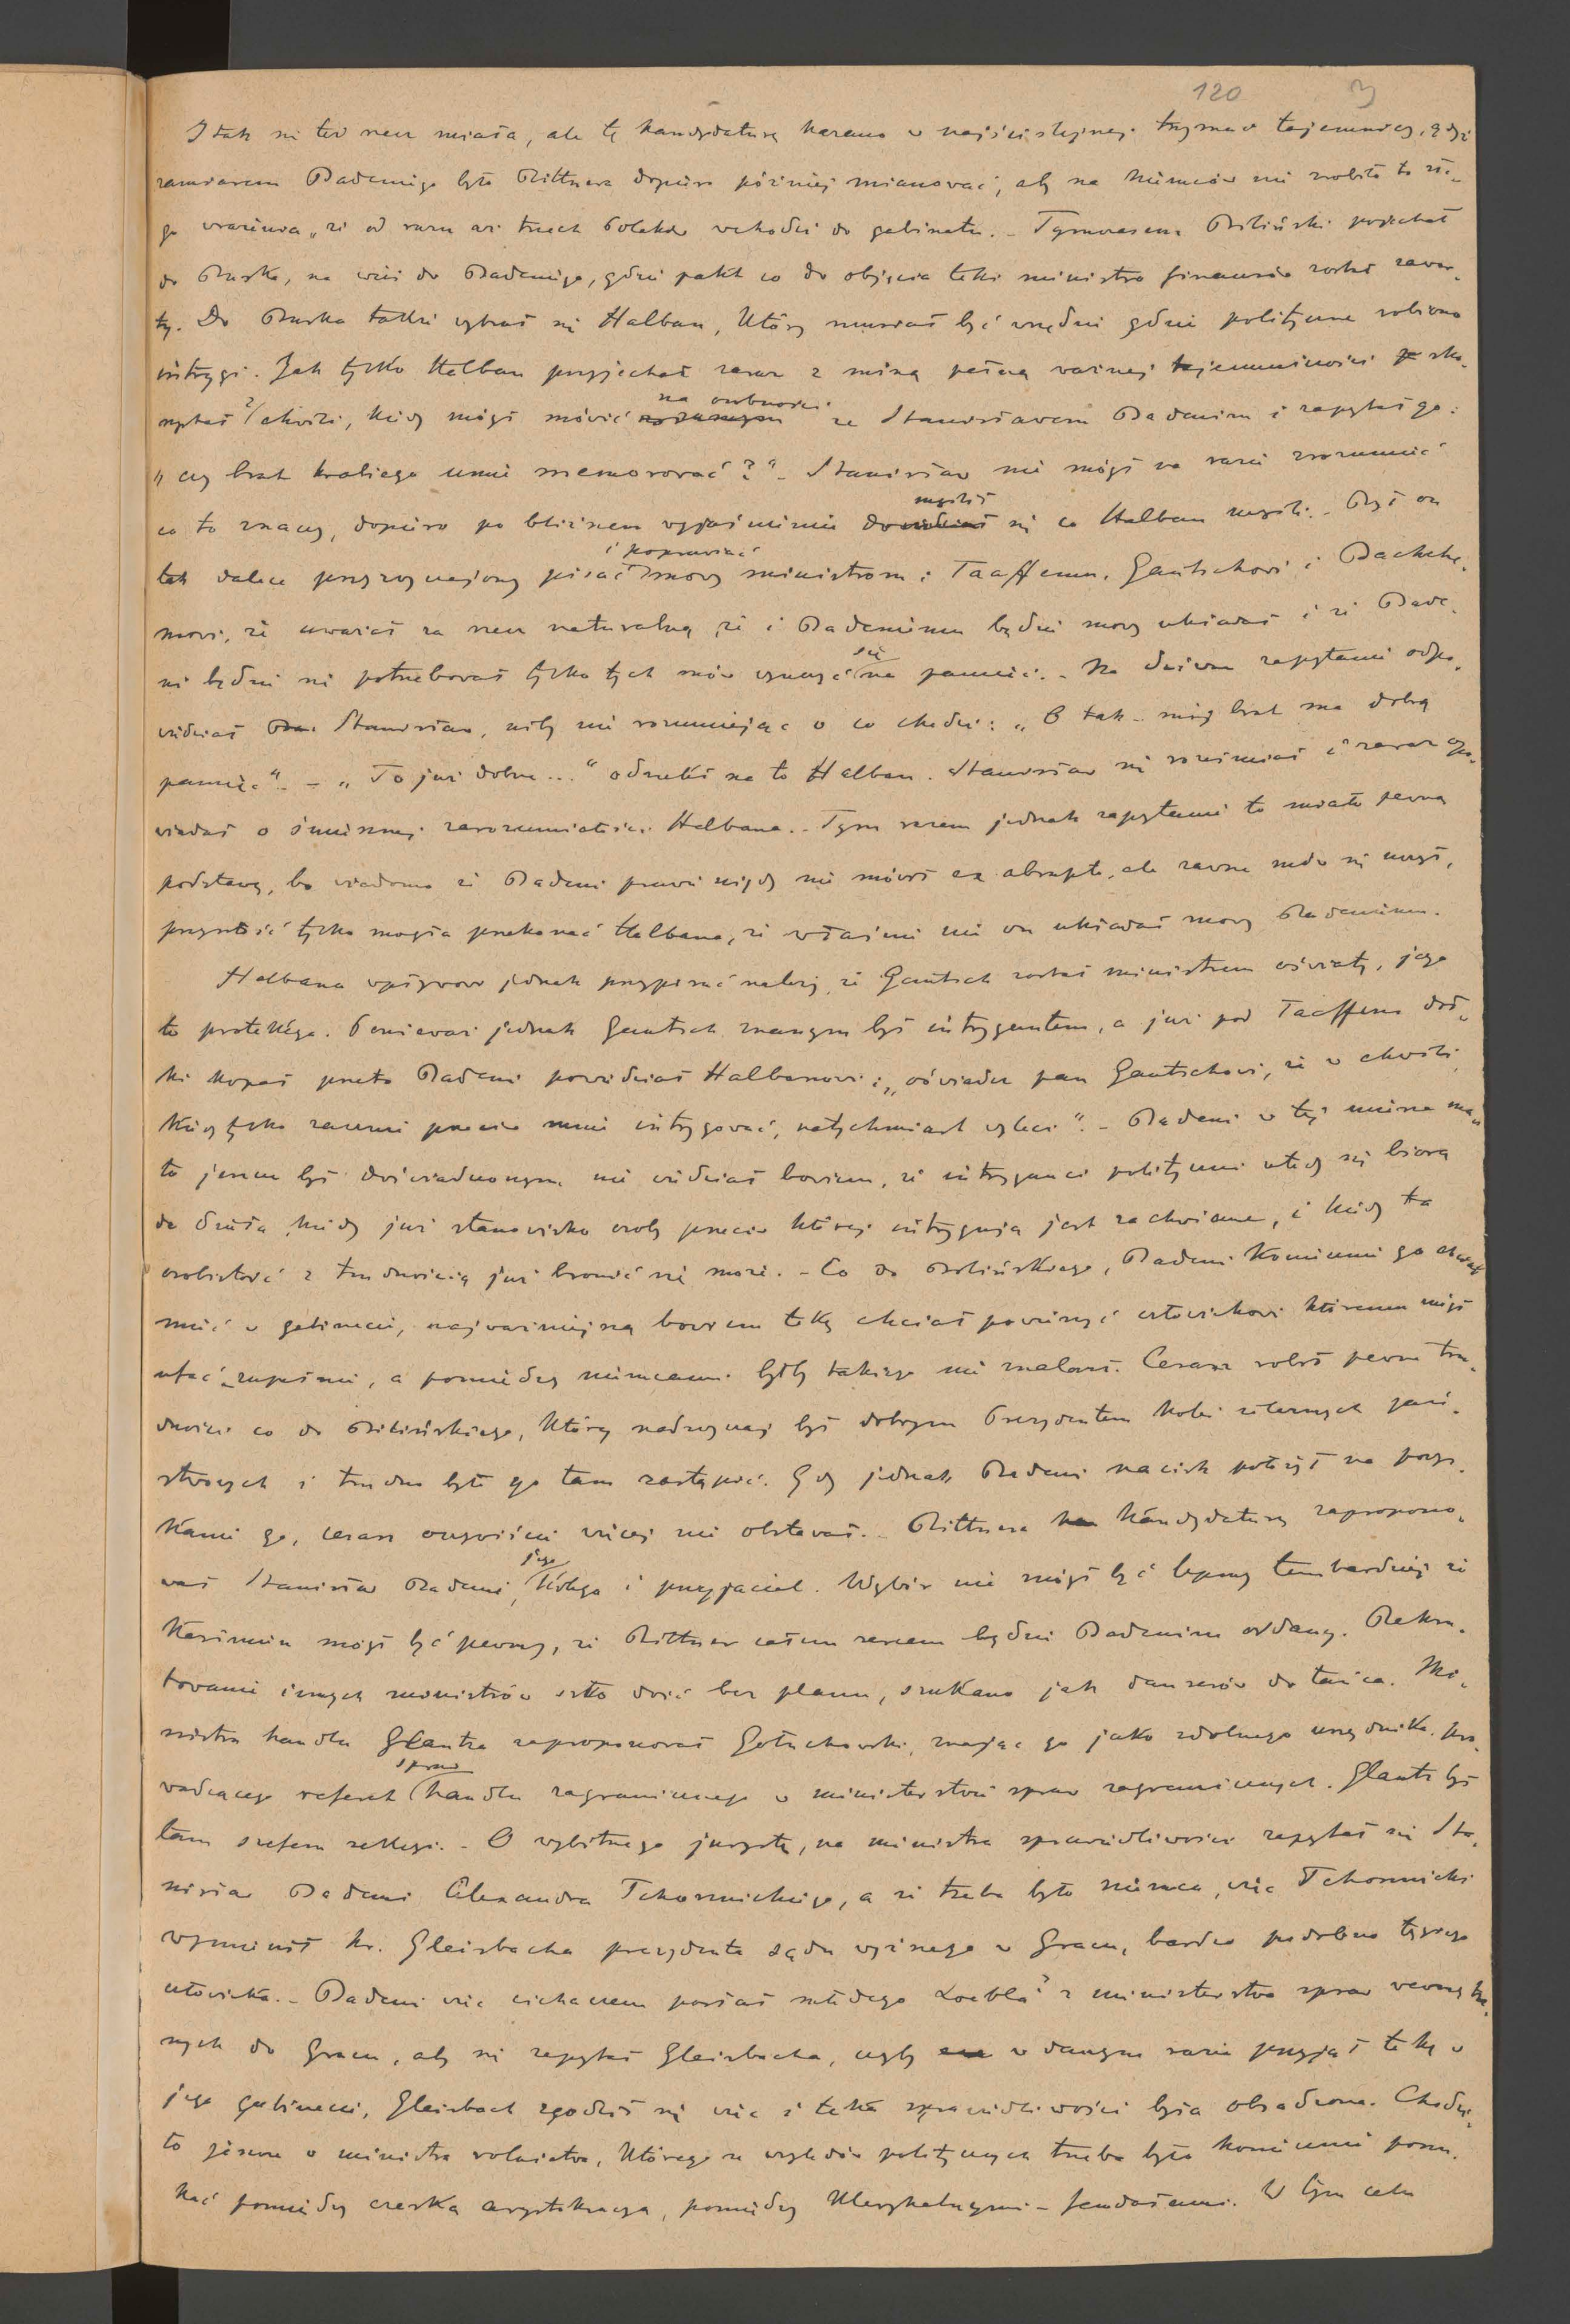 120 3
I tak się też rzecz miała, ale tę kandydaturę kazano w najściślejszej trzymać tajemnicy, gdyż
zamiarem Badeniego było Rittnera dopiero później mianować, aby na Niemców nie zrobiło to złe-
go wrażenia, że od razu aż trzech Polaków wchodzi do gabinetu. - Tymczasem Biliński pojechał
do Buska, na wieś do Badeniego, gdzie pakt co do objęcia teki ministra finansów został zawar-
ty. Do Buska także wybrał się Halban, który musiał być wszędzie gdzie polityczne robiono
intrygi. Jak tylko Halban przyjechał zaraz z miną pełną ważnej tajemniczości sko-
rzystał z chwili, kiedy mógł mówić na osobności ze Stanisławem Badenim i zapytał go:
„czy brat hrabiego umie memorować?" - Stanisław nie mógł na razie zrozumieć
co to znaczy, dopiero po bliższem wyjaśnieniu domyślił się co Halban myśli. - Był on
tak dalece przyzwyczajony pisać i poprawiać mowy ministrom: Taaffemu, Gautschowi i Bacquehe-
mowi, że uważał za rzecz naturalną, że i Badeniemu będzie mowy układał i że Bade-
ni będzie się potrzebował tylko tych mów uczyć się na pamięć. - Na dziwne zapytanie odpo-
wiedział Stanisław, niby nie rozumiejąc o co chodzi: „O tak - mój brat ma dobrą
pamięć" - „To już dobrze..." odrzekł na to Halban. Stanisław się roześmiał i zaraz opo-
wiadał o śmiesznej zarozumiałości Halbana. - Tym razem jednak zapytanie to miało pewną
podstawę, bo wiadomo że Badeni prawie nigdy nie mówił ex abrupto, ale zawsze mów się uczył,
przyszłość tylko mogła przekonać Halbana, że właśnie nie on układał mowy Badeniemu.
Halbana wpływowi jednak przypisać należy, że Gautsch został ministrem oświaty, jego
to protektège. Ponieważ jednak Gautsch znanym był intrygantem, a już pod Taaffem doł-
ki kopał przeto Badeni powiedział Halbanowi: „oświadcz pan Gautschowi, że w chwili,
kiedy tylko zacznie przeciw mnie intrygować, natychmiast wyleci". - Badeni w tej mierze ma-
ło jeszcze był doświadczonym, nie wiedział bowiem, że intryganci polityczni wtedy się biorą
do dzieła, kiedy już stanowisko osoby przeciw której intrygują jest zachwiane, i kiedy ta
osobistość z trudnością już bronić się może. - Co do Bilińskiego, Badeni koniecznie go chciał
mieć w gabinecie, najważniejszą bowiem tekę chciał powierzyć człowiekowi któremu mógł
ufać zupełnie, a pomiędzy Niemcami byłby takiego nie znalazł. Cesarz robił pewne tru-
dności co do Bilińskiego, który nadzwyczaj był dobrym Prezydentem kolei żelaznych pań-
stwowych i trudno było go tam zastąpić. Gdy jednak Badeni nacisk położył na pozys-
kanie go, cesarz oczywiście więcej nie obstawał. - Rittnera kandydaturę zapropono-
wał Stanisław Badeni, jego kolega i przyjaciel. Wybór nie mógł być lepszy tembardziej że
Kazimierz mógł być pewny, że Rittner całem sercem będzie Badenim oddany. Rekru-
towanie innych ministrów szło dość bez planu, szukano jak danserów do tańca. Mi-
nistra handlu Glantza zaproponował Gołuchowski, znając go jako zdolnego urzędnika, pro-
wadzącego referat spraw handlu zagranicznego w ministerstwie spraw zagranicznych. Glantz był
tam szefem sekcyi. - O wybitnego jurystę, na ministra sprawiedliwości zapytał się Sta-
nisław Badeni Alexandra Tchorznickiego, a że trzeba było Niemca, więc Tchorznicki
wymienił hr. Gleisbacha prezydenta sądu wyższego w Gracu, bardzo podobno tęgiego
człowieka. - Badeni więc cichaczem posłał młodego Loebla z ministerstwa spraw wewnętrz-
nych do Gracu, aby się zapytał Gleisbacha, czyby w danym razie przyjął tekę w
jego gabinecie, Gleisbach zgodził się więc i teka sprawiedliwości była obsadzona. Chodzi-
ło jeszcze o ministra rolnictwa, którego ze względów politycznych trzeba było koniecznie poszu-
kać pomiędzy czeską arystokracyą, pomiędzy klerykalnymi - feudałami. W tym celu